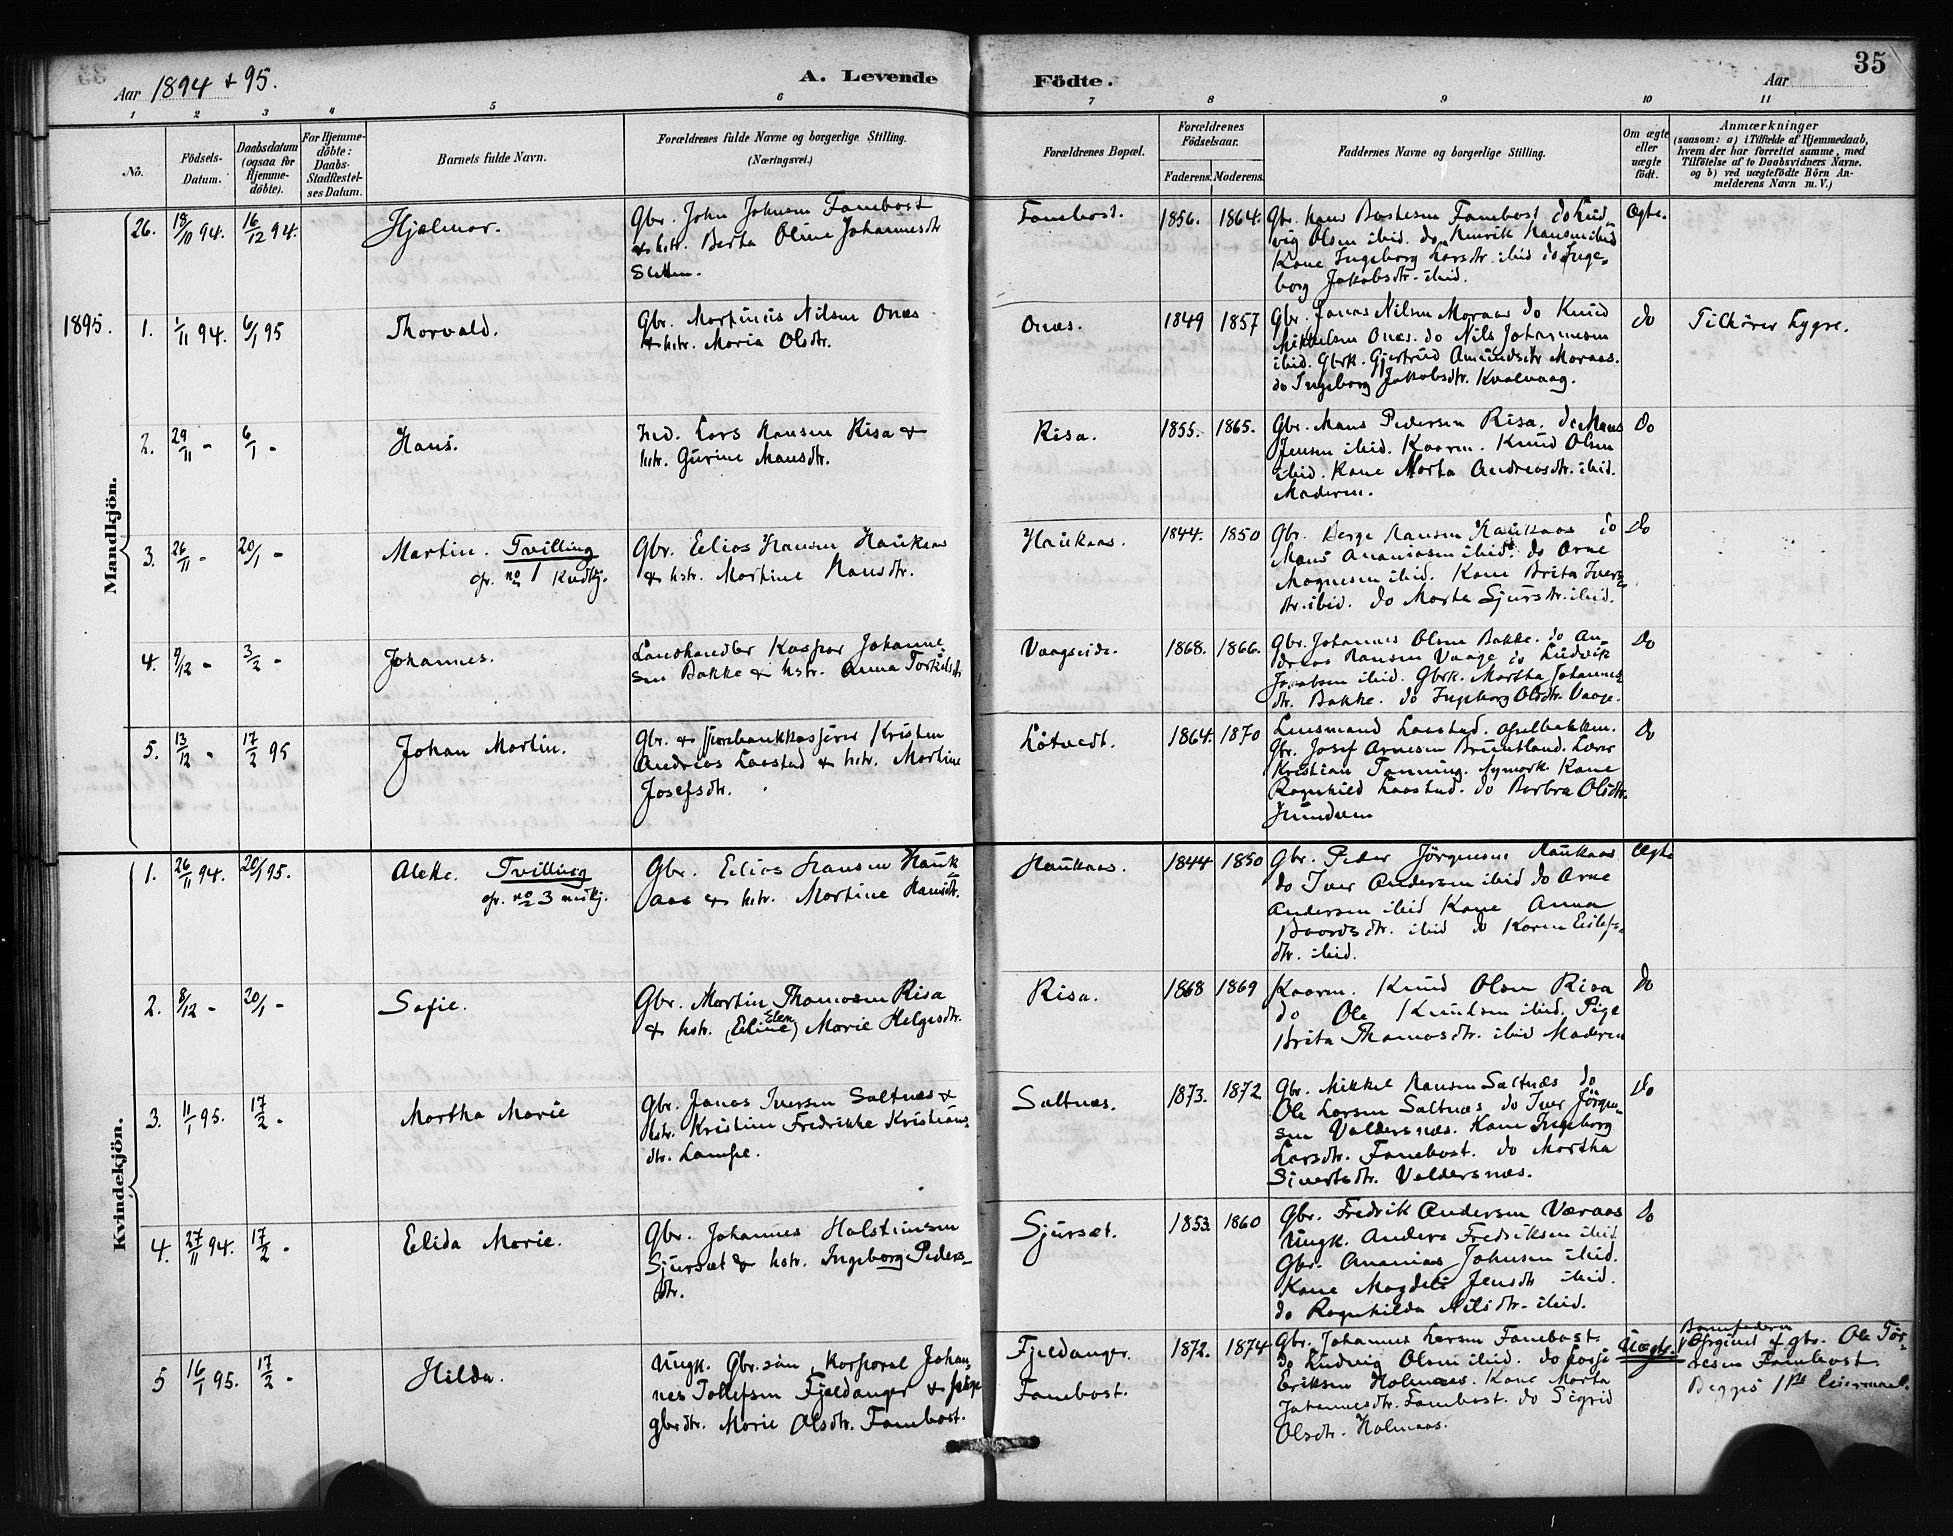 35
Aar 1894 + 95.
A. Levende
Födte.
Aar
1 2 3 4 5 6 7 8 9 10 11
No.
Födsels-
Datum.
Daabsdatum
(ogsaa for
Hjemme-
döbte).
For Hjemme-
döbte:
Daabs-
Stadfæstel-
ses Datum.
Barnets fulde Navn.
Forældrenes fulde Navne og borgerlige Stilling.
(Næringsvei.)
Forældrenes Bopæl.
Forældrenes
Födselsaar.
Faderens. Moderens.
Faddernes Navne og borgerlige Stilling.
Om ægte
eller
uægte
födt.
Anmærkninger
(saasom: a) i Tilfælde af Hjemmedaab,
hvem der har forrettet samme, med
Tilföielse af to Daabsvidners Navne,
og b) ved uægtefödte Börn An-
melderens Navn m. V.)
Mandkjön.
26. 18/10 94. 16/12 94. Hjalmar.
Gbr. John Johnsen Fanebost
& hstr. Berta Oline Johannesdtr
Fanebost. 1856. 1864.
Gbr. Hans Fanebost do Lud-
vig Olsen ibid. do Henrik Hansen ibid
Kone Ingeborg Larsdtr. ibid do Inge-
borg Jakobsdtr. ibid.
Ægte.
1895.
1. 1/11 94. 6/1 95 Thorvald.
Gbr. Martinus Nilsen Onæs
& hstr. Maria Olsdtr.
Onæs. 1849 1857
Gbr. Jonas Nilsen Moraas do Knud
Mikkelsen Onæs. do Nils Johannesen
ibid. Gbrk. Gjertrud Amundsdtr Moraas.
do Ingeborg Jakobsdtr. Kvalvaag.
do
Tilhører Lygre.
2. 29/11 - 6/1 - Hans.
Lars Hansen Risa &
hstr. Gurine Mansdtr.
Risa. 1855. 1865.
Gbr. Mans Pedersen Risa. do Mans
Jensen ibid. Kaarm. Knud Olsen
ibid. Kone Marta Andreasdtr. ibid.
Moderen.
do
3. 26/11 - 20/1 - Martin. Tvilling
cfr. no 1 Kvdkj.
Gbr. Eelias Hansen Haukaas
& hstr. Martine Hansdtr.
Haukaas. 1844. 1850
Gbr. Berge Hansen Haukaas do
Mans Ananiasen ibid. do Arne
Magnesen ibid. Kone Brita Ivers-
dtr. ibid. do Marta Sjursdtr. ibid.
do
4. 9/12 - 3/2 - Johannes.
Landhandler Kaspar Johanne-
sen Bakke & hstr. Anna Torkelsdtr
Vaagseide. 1868. 1866.
Gbr. Johannes Olsen Bakke. do An-
dreas Hansen Vaage do Ludvik
Jakobsen ibid. Gbrk. Martha Johannes-
dtr. Bakke. do Ingeborg Olsdtr. Vaage.
do
5. 13/12 - 17/2 95 Johan Martin.
Gbr. & Sparebankkasserer Kristen
Andreas Laastad & hstr. Martine
Josefsdtr.
Lötvedt. 1864. 1870
Lensmand Laastad.
Gbr. Josef Arnesen Bruntland. Lærer
Kristian Tonning. Nymark Kone
Ragnhild Laastad. do Barbra Olsdtr.
do
Kvindekjön.
1. 26/11 94. 20/1 95. Alette. Tvilling
cfr. no 3 mdkj.
Gbr. Eelias Hansen Hauk-
aas & hstr. Martine Hansdtr.
Haukaas. 1844 1850
Gbr. Peder Jörgensen Haukaas
do Iver Andersen ibid do Arne
Andersen ibid Kone Anna
Baardsdtr. ibid do Karen Eilefs-
dtr. ibid.
Ægte
2. 8/12 - 20/1 - Sofie.
Gbr. Martin Thomasen Risa
& hstr. (Eeline) Elen Marie Helgesdtr.
Risa. 1868 1869
Kaarm. Knud Olsen Risa
do Ole Knudsen ibid. Pige
Brita Thomasdtr. ibid Moderen
do
3. 11/1 95. 17/2 - Martha Marie
Gbr. Jonas Iversen Saltnæs &
hstr. Kristine Fredrikke Kristians-
dtr. Lampe.
Saltnæs. 1873. 1872
Gbr. Mikkel Hansen Saltnæs do
Ole Larsen Saltnæs do Iver Jörgen-
sen Valdersnæs. Kone Ingeborg
Larsdtr. Fanebost. do Martha
Sivertsdtr. Valdersnæs.
do
4. 27/11 94. 17/2 - Elida Marie.
Gbr. Johannes Halsteinsen
Sjursæt & hstr. Ingeborg Peders-
dtr.
Sjursæt. 1853 1860
Gbr. Fredrik Andersen Væraas
Ungk. Anders Fredriksen ibid.
Gbr. Ananias Johnsen ibid.
Kone Magdeli Jensdtr ibid.
do Ragnhilda Nilsdtr. ibid.
do
5 16/1 95. 17/2 - Hilda.
Ungk. Gbr.sön, Korporal Johan-
nes Tollefsen Fjeldanger & pige
gbrdtr. Marie Olsdtr. Fanebost.
Fjeldanger.
Fanebost.
1872. 1874
Gbr. Johannes Larsen Fanebost.
do Ludvig Olsen ibid. do
Eriksen Holmaas. Kone Marta
Johannesdtr. Fanebost. do Sigrid
Olsdtr. Holmaas.
Uægte.
Barnefaderen
opgivet af gbr. Ole
Fanebost.
Begges 1ste Leiermaal.